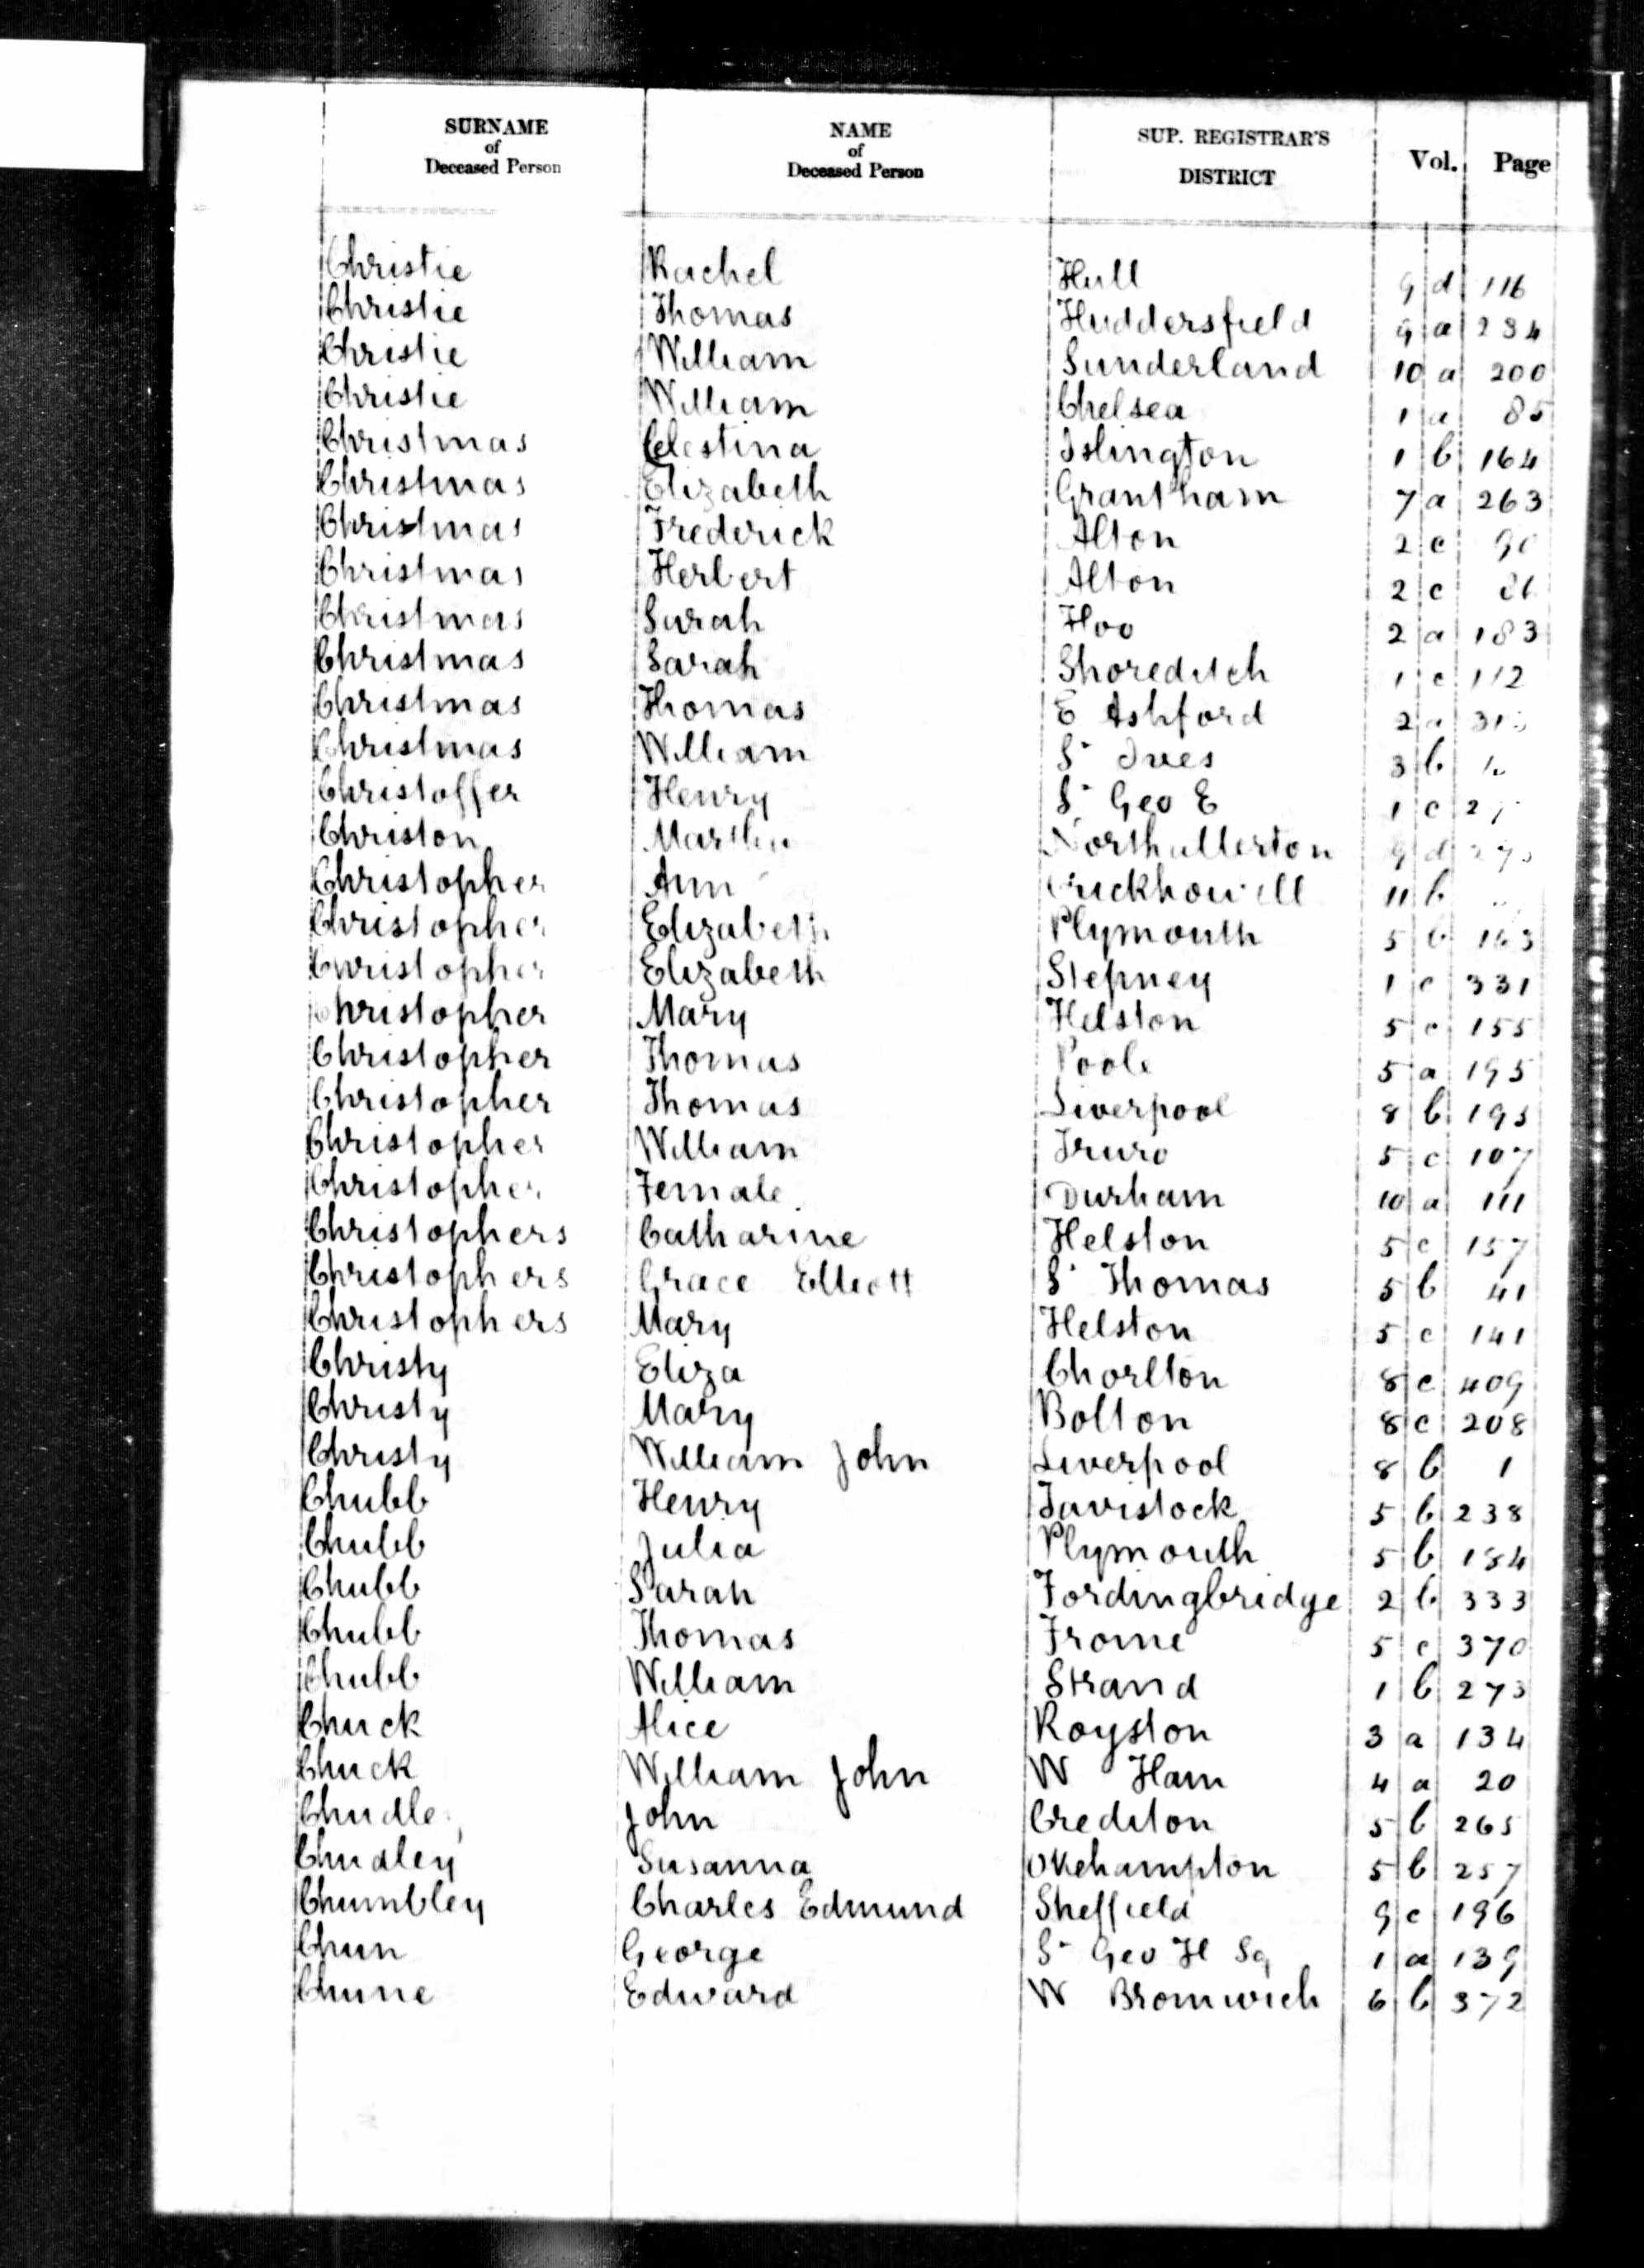 SURNAME of Deceased Person NAME of Deceased Person SUP. REGISTRAR'S DISTRICT Vol. Page
Christie Rachel Hull 9 d 116
Christie Thomas Huddersfield 9 a 234
Christie William Sunderland 10 a 200
Christie William Chelsea 1 a 85
Christmas Celestina Islington 1 b 164
Christmas Elizabeth Grantham 7 a 263
Christmas Frederick Alton 2 c
Christmas Herbert Alton 2 c
Christmas Sarah Hoo 2 a 183
Christmas Sarah Shoreditch 1 c 112
Christmas Thomas E Ashford 2 a
Christmas William St Ives 3 b
Christoffer Henry St Geo E 1 c
Christon Martha Northallerton 9 d
Christopher Ann Crickhowell 11 b
Christopher Elizabeth Plymouth 5 b
Christopher Elizabeth Stepney 1 c 331
Christopher Mary Helston 5 c 155
Christopher Thomas Poole 5 a 195
Christopher Thomas Liverpool 8 b 195
Christopher William Truro 5 c 107
Christopher Female Durham 10 a 111
Christophers Catharine Helston 5 c 157
Christophers Grace Elliott St Thomas 5 b 41
Christophers Mary Helston 5 c 141
Christy Eliza Chorlton 8 c 409
Christy Mary Bolton 8 c 208
Christy William John Liverpool 8 b 1
Chubb Henry Tavistock 5 b 238
Chubb Julia Plymouth 5 b 184
Chubb Sarah Fordingbridge 2 b 333
Chubb Thomas Frome 5 c 370
Chubb William Strand 1 b 273
Chuck Alice Royston 3 a 134
Chuck William John W Ham 4 a 20
Chudley John Crediton 5 b 265
Chudley Susanna Okehampton 5 b 257
Chumbley Charles Edmund Sheffield 9 c 196
Chun George St Geo H Sq 1 a 139
Chune Edward W Bromwich 6 b 372